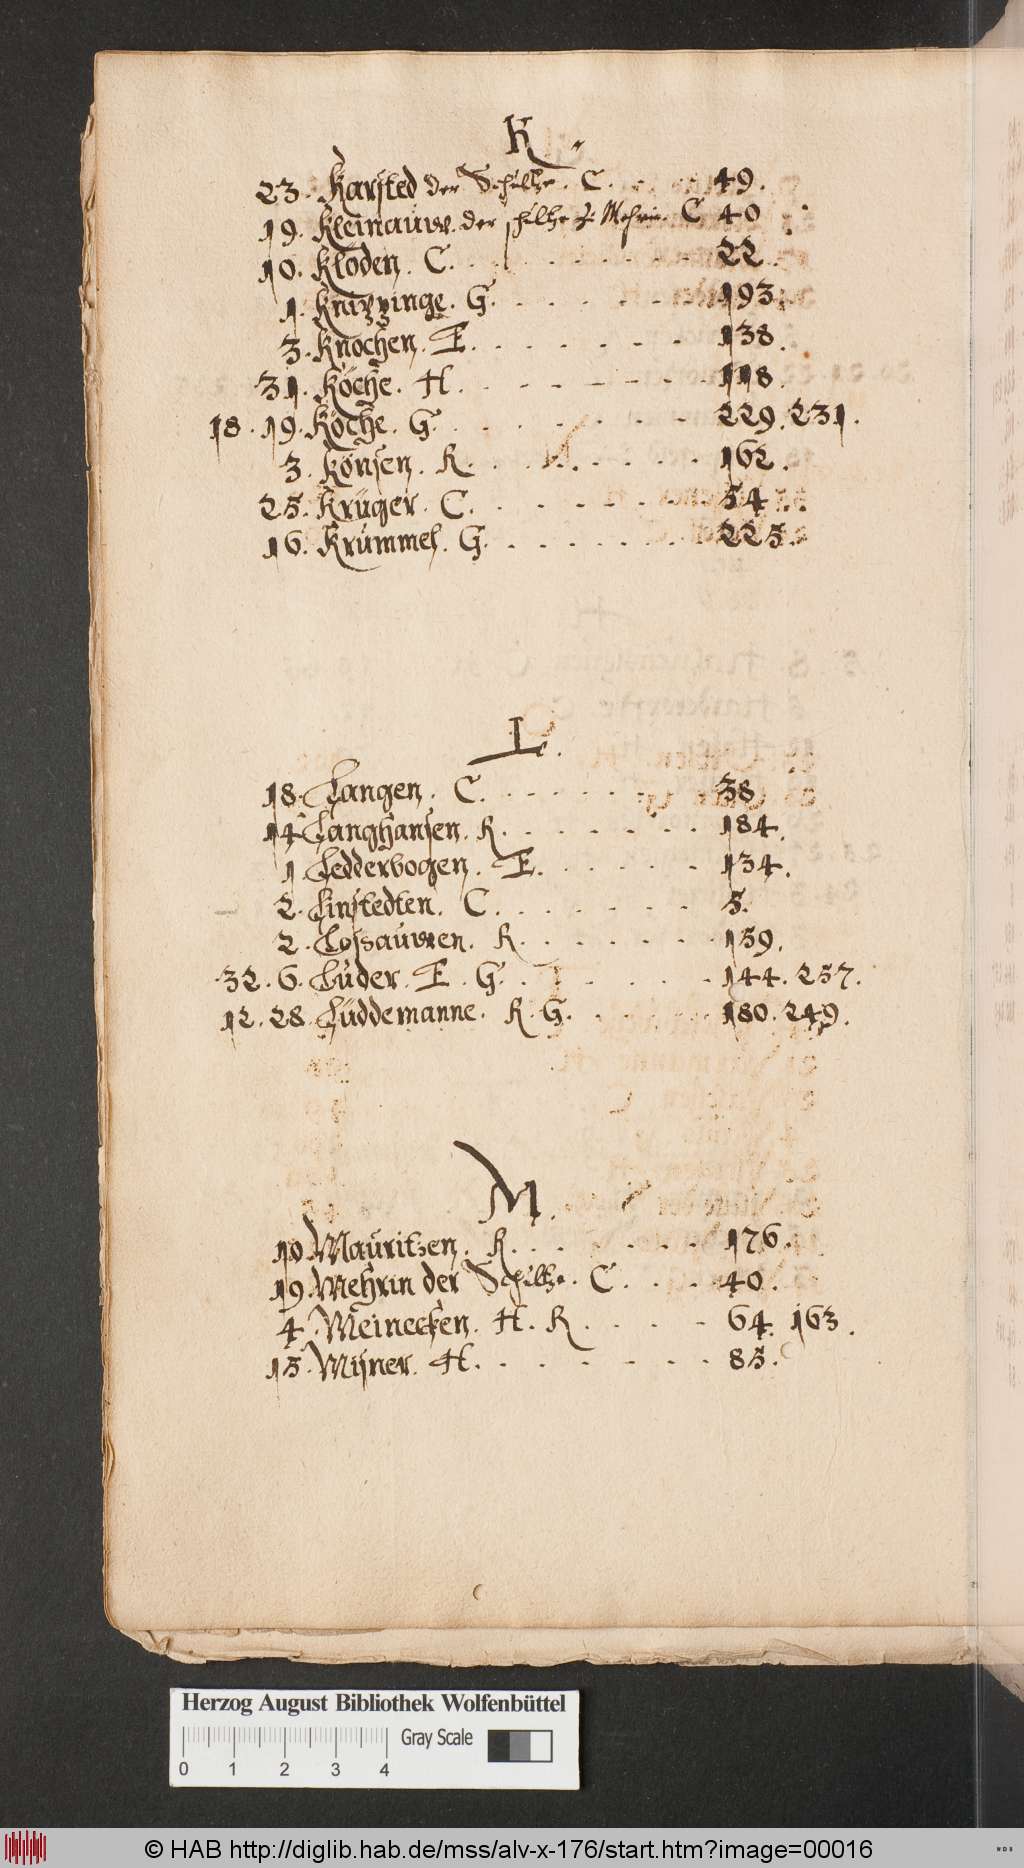 K.
23. Karsted der Schultze. C. . . . . 49.
19. Kleinauw. der schultze z. Mehrin. C 40.
10. Kloden. C. . . . . . . . . . 22.
1. Knizzinge. G. . . . . . . . 193.
3. Knochen. E. . . . . . . . . 138.
31. Köche. H. . . . . . . . . 118.
18. 19. Koche. G. . . . . . . . . 229. 231.
3. Könsen. R. . . . . . . . . 162.
25. Krüger. C. . . . . . . . . 54.
16. Krümmel. G. . . . . . . . . 225.
L.
18. Langen. C. . . . . . . . 38
14. Langhansen. R. . . . . . . . 184.
1. Ledderbogen. E. . . . . . . 134.
2. Linstedten. C. . . . . . . . 5.
2. Lossauwen. R. . . . . . . . 159.
32. 6. Lüder. E. G. . . . . . . . 144. 257.
12. 28. Lüddemanne. R. G. . . . . . 180. 249.
M.
10. Mauritzen. R. . . . . . . . . 176.
19. Mehrin der Schultze. C. . . . 40.
4. Meinecken. H. R . . . . . 64. 163.
15. Mijner. H. . . . . . . . . 85.
Herzog August Bibliothek Wolfenbüttel
Gray Scale
0 1 2 3 4
© HAB http://diglib.hab.de/mss/alv-x-176/start.htm?image=00016